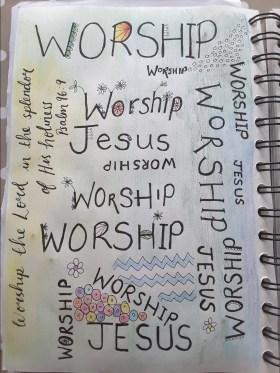 WORSHIP
WORSHIP
Worship the Lord in the splendor
of His holiness
Psalm 96:9
Worship
Jesus
WORSHIP
WORSHIP
WORSHIP
WORSHIP
JESUS
WORSHIP
JESUS
WORSHIP
WORSHIP
WORSHIP
JESUS